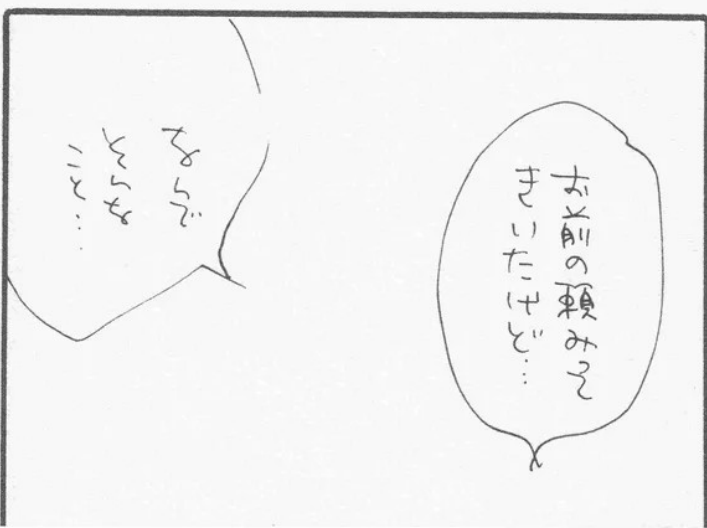 お前の頼みって
きいたけど…
なんで
そんな
こと…